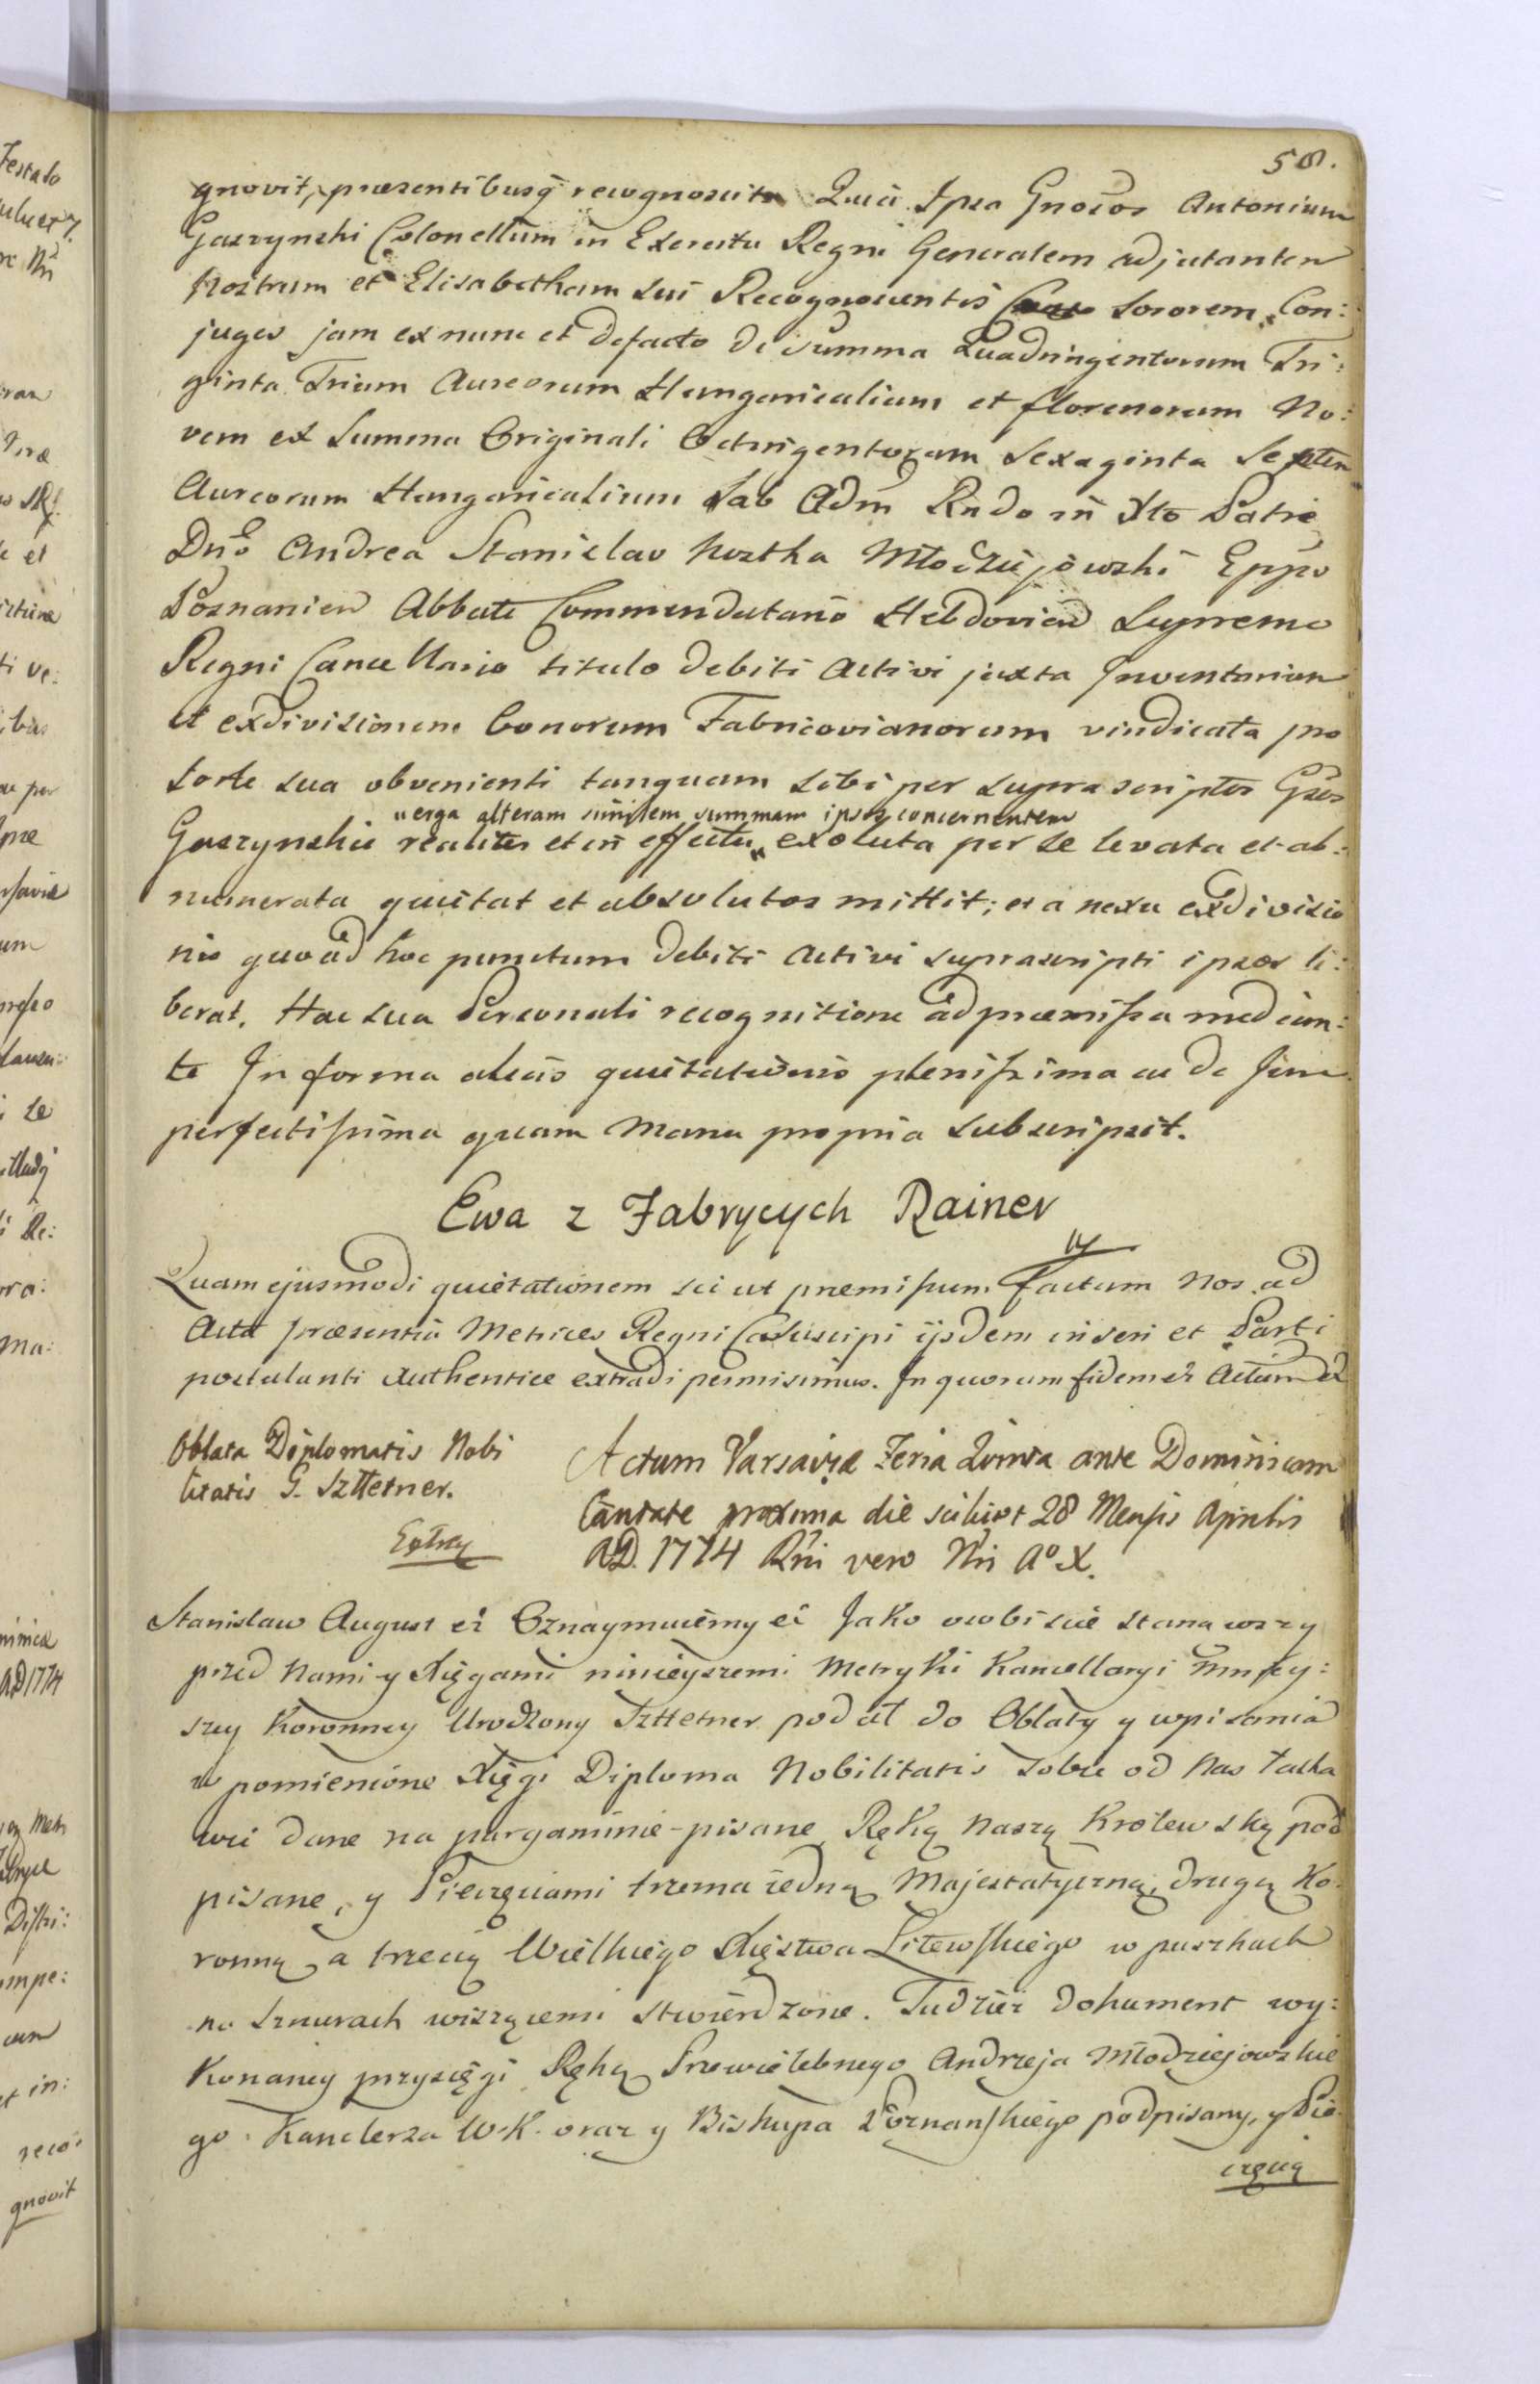 58.
gnovit, praesentibusq recognoscit Quia Ipsa Gnosos Antonium
Gaszynski Colonellum in Exercitu Regni Generalem adjutantem
Nostrum et Elisabetham sui Recognoscentis Sororem, Con:
juges jam ex nunc et defacto de Summa Quadringentorum Tri:
ginta Trium Aureorum Hungaricalium et florenorum No:
vem ex Summa Originali Octingentorum Sexaginta Septem
Aureorum Hungaricalium ab Adm Rndo in Xto Patre
Dno Andrea Stanislao Kostka Młodziejowski Eppo
Posnanien Abbate Commendatario Hebdovien Supremo
Regni Cancellario titulo debiti Activi juxta Inventarium
et exdivisionem bonorum Fabricovianorum vindicata pro
sorte sua obvenienti tanquam sibi per suprascriptos Gsos
"erga alteram similem summam ipsos concernentem
Gaszynskie realiter et in effectu" exoluta per se levata et ab:
numerata quietat et absolutos mittit; et a nexu exdivisio
nis quoad hoc punctum debiti Activi suprascripti ipsos li:
berat. Hac sua Personali recognitione ad praemissa median:
te In forma alias quietationis plenissima ac de Jure
perfectissima quam Manu propria subscripsit.
Ewa z Fabrycych Rainer
Quam ejusmodi quietationem sic ut premissum Factam Nos ad
Acta praesentia Metrices Regni Cas suscipi ijsdem inseri et Parti
postulanti Authentice extradi permisimus. In quorum fidem &c Actum &c
Oblata Diplomatis Nobi
litatis G. Szttetner.
Extra
Actum Varsaviae Feria Quinta ante Dominicam
Cantate proxima die scilicet 28 Mensis Aprilis
A.D. 1774 Rni vero Nri Ao X.
Stanislaw August &c Oznaymuiemy &c Jako osobiscie stanawszy
przed Nami y Xięgami ninieyszemi Metryki Kancellaryi Mniey:
szey Koronney Urodzony Szttetner podał do Oblaty y wpisania
w pomienione Xięgi Diploma Nobilitatis sobie od Nas łaska
wie dane na pargaminie pisane Ręką Naszą Krolewską pod
pisane, y Pieczęciami trzema iedną Majestatyczną, drugą Ko:
ronną a trzecią Wielkiego Xięstwa Litewskiego w puszkach
na sznurach wiszącemi stwierdzone. Tudzież dokument wy:
konaney przysięgi Ręką Przewielebnego Andrzeja Młodziejowskie
go Kanclerza W.K. oraz y Biskupa Poznanskiego podpisany, y Pie
częcią